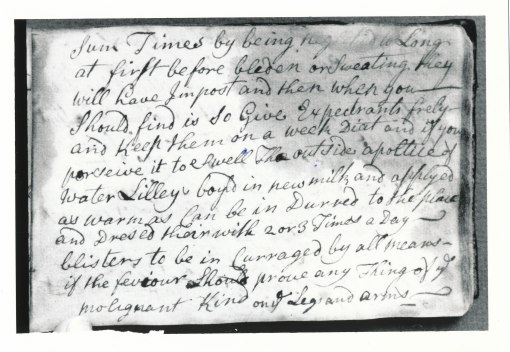 Sum Times by being Long
at first before bleden or Sweating they
will have Impost and then when you
Should find is So Give Expectrants frely
and keep them on a week Diat and if you
perseive it to Swell The outside apoltice of
Water Lilley boyld in new milk and applyed
as warm as Can be in Dured to the place
and Dresed their with 2 or 3 Times a Day
blisters to be in Curraged by all means
if the feviour Should prove any Thing of ye
molignant Kind on ye Legs and arms